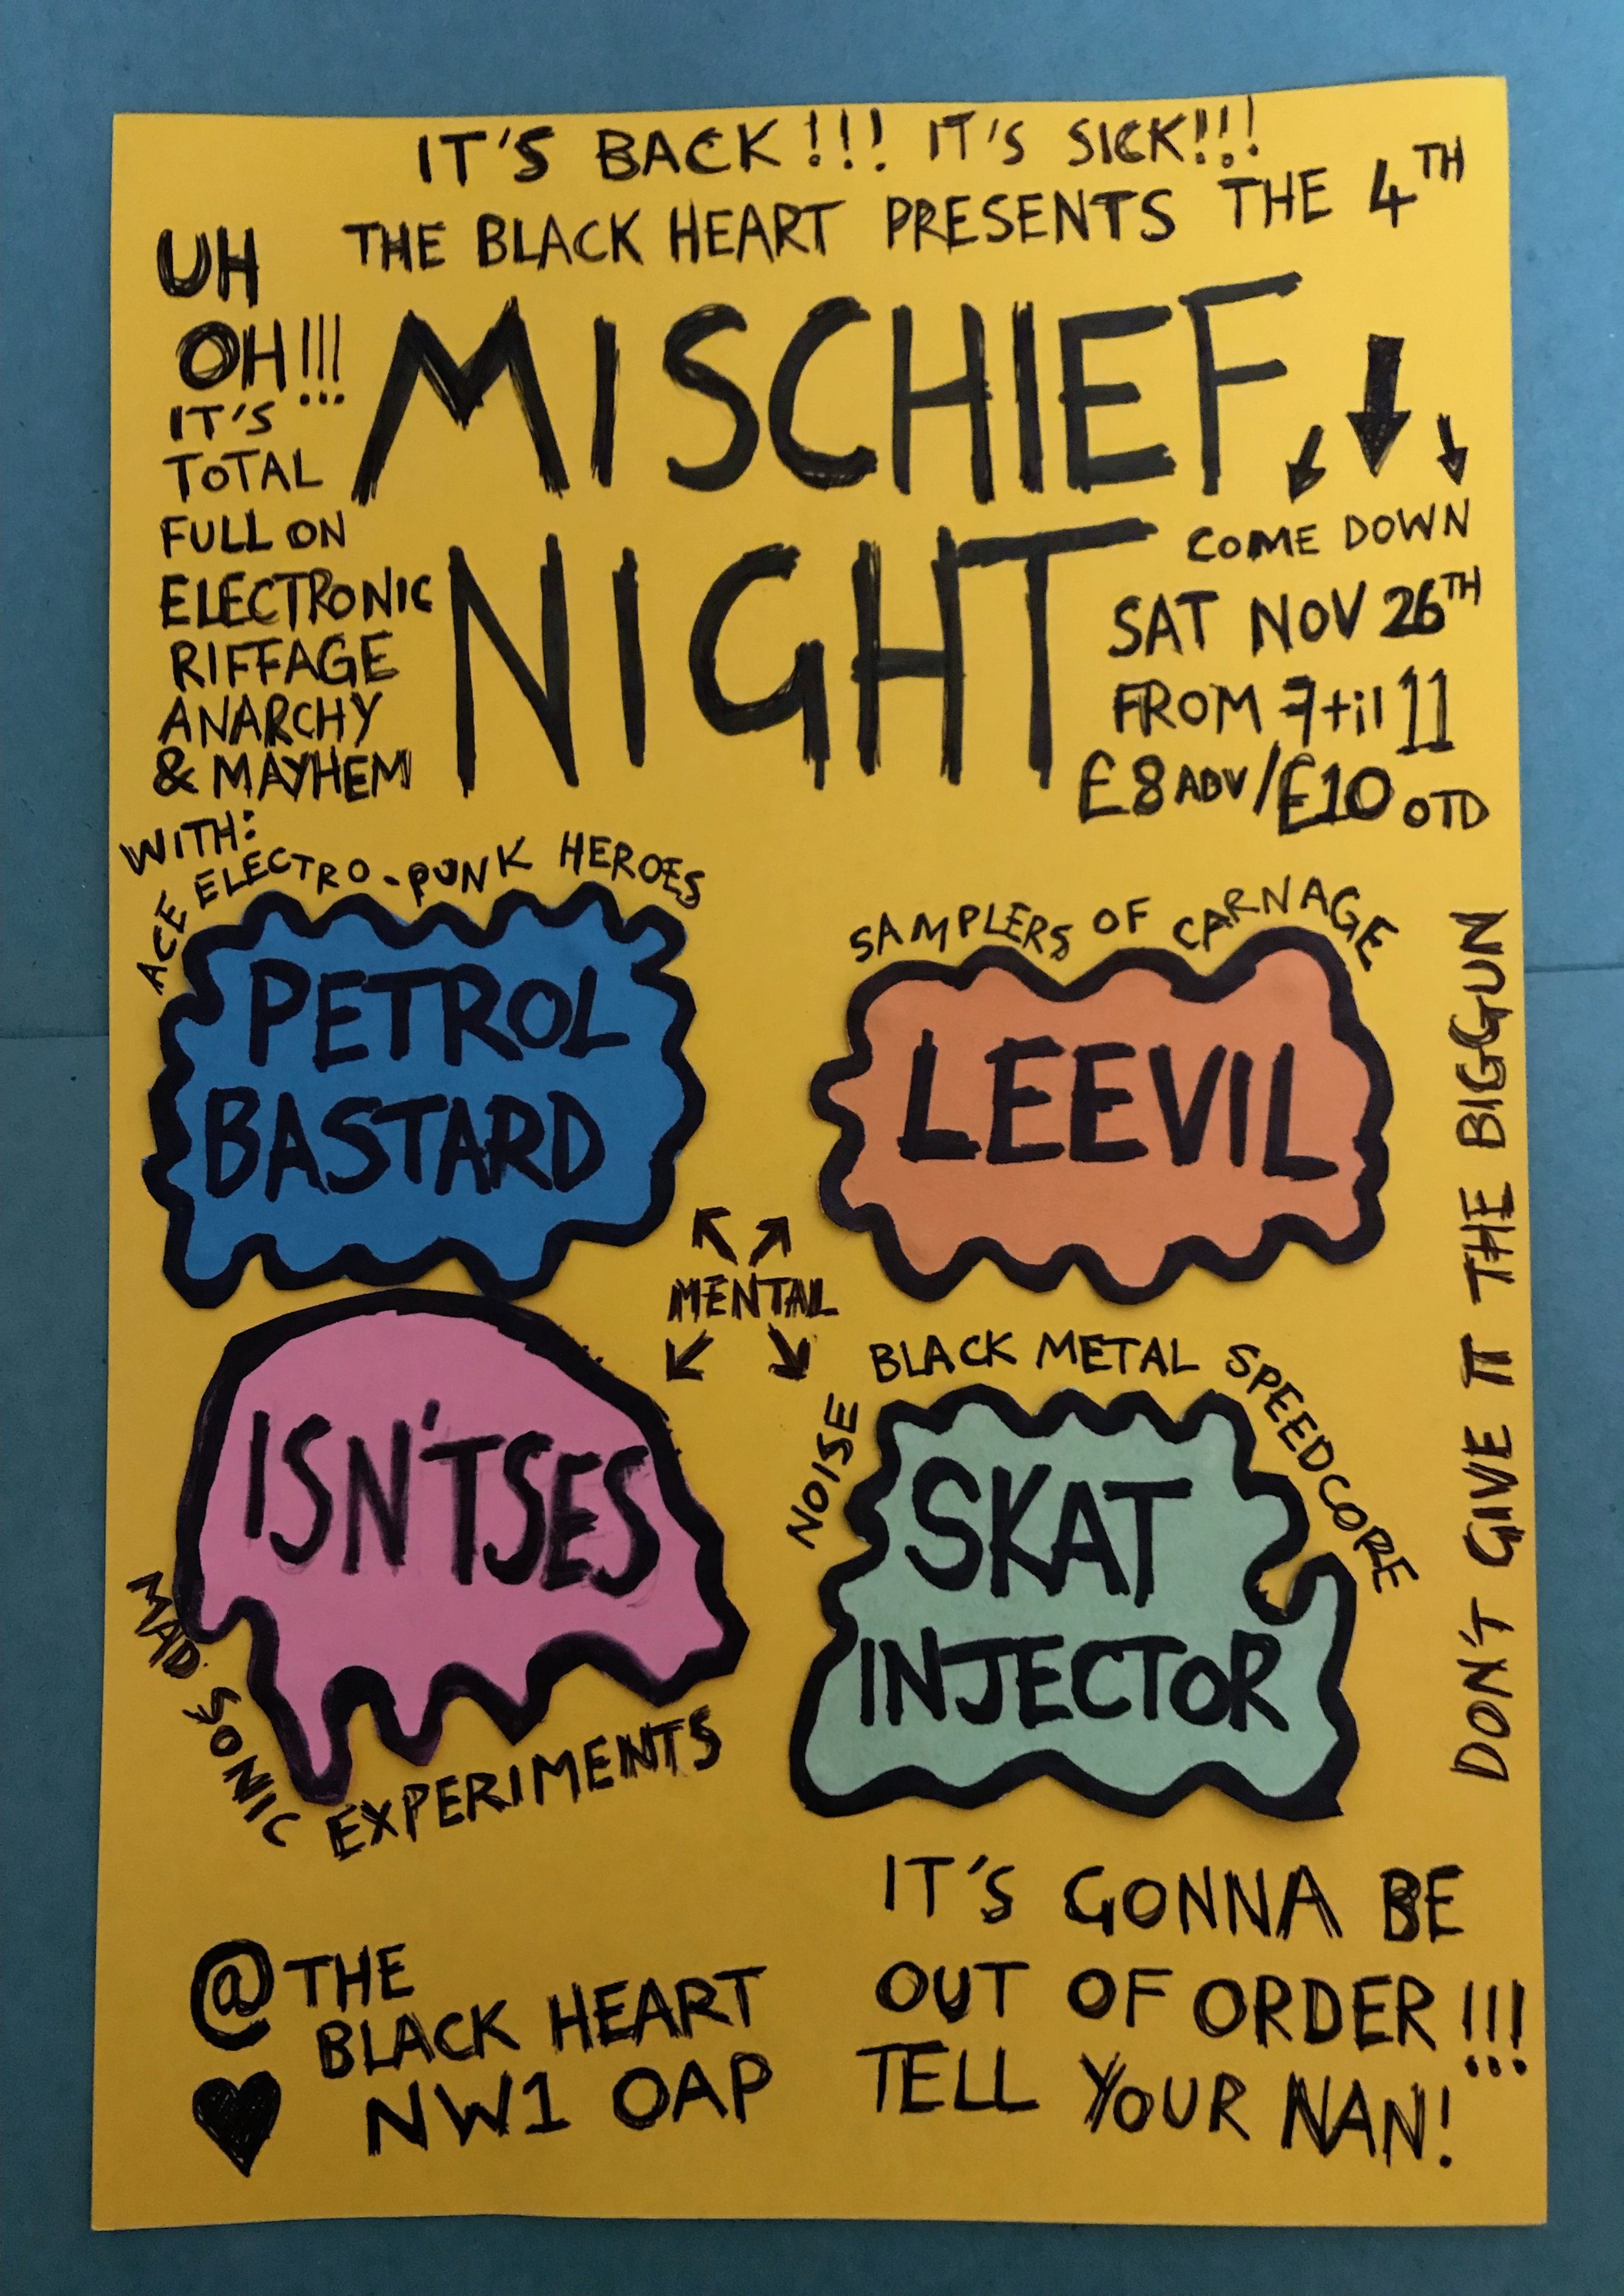 IT'S BACK!!! IT'S SICK!!!
THE BLACK HEART PRESENTS THE 4TH
MISCHIEF
NIGHT
UH
OH!!!
IT'S
TOTAL
FULL ON
ELECTRONIC
RIFFAGE
ANARCHY
& MAYHEM
COME DOWN
SAT NOV 26TH
FROM 7til 11
£8 ADV/£10 OTD
WITH:
ACE ELECTRO-PUNK HEROES
PETROL
BASTARD
SAMPLERS OF CARNAGE
LEEVIL
MENTAL
ISN'TSES
MAD SONIC EXPERIMENTS
NOISE BLACK METAL SPEEDCORE
SKAT
INJECTOR
DON'T GIVE IT THE BIGGUN
@ THE
BLACK HEART
NW1 OAP
IT'S GONNA BE
OUT OF ORDER!!!
TELL YOUR NAN!